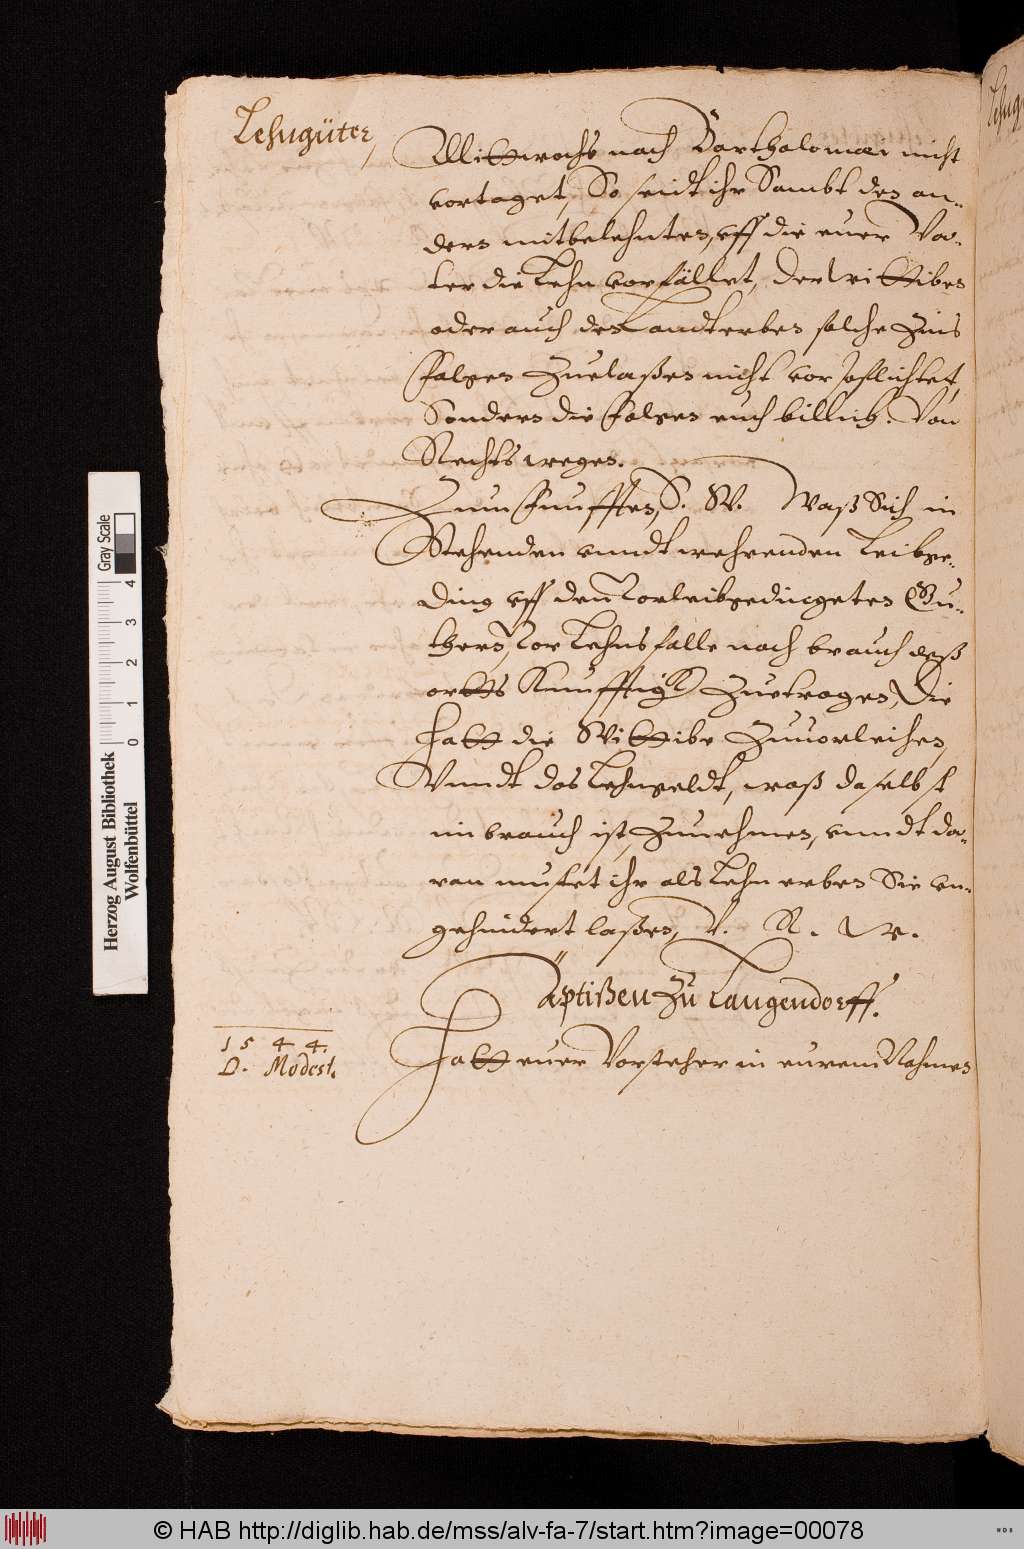 Lehngüter,
Mittwochs nach Bartholomæi nicht
vortaget, So seidt ihr Sambt den an-
dern mitbelehnten, uff die euer Va-
ter die Lehn vorfället, der Wittiben
oder auch den Landterben solche Zins
folgen Zuelaßen nicht vorpflichtet,
Sondern die folgen euch billich. Von
Rechts wegen.
Zum Funfften, S. W. Waß Sich in
Stehenden unndt wehrenden Leibge-
ding uff den vorleibgedingeten Gu-
thern, vor Lehnsfalle nach brauch deß
ortts Kunfftigk Zuetragen, Die
hatt die Wittibe Zuuorleihen,
Vnndt das Lehngeldt, waß daselbst
im brauch ist, Zunehmen, unndt da-
ran mußet ihr als Lehn erben Sie un-
gehindert laßen, V. R. W.
Äptißen Zu Langendorff.
1544.
D. Modest.
Hatt euer Vorsteher in eurem Nahmen
Herzog August Bibliothek
Wolfenbüttel
0 1 2 3 4
Gray Scale
© HAB http://diglib.hab.de/mss/alv-fa-7/start.htm?image=00078